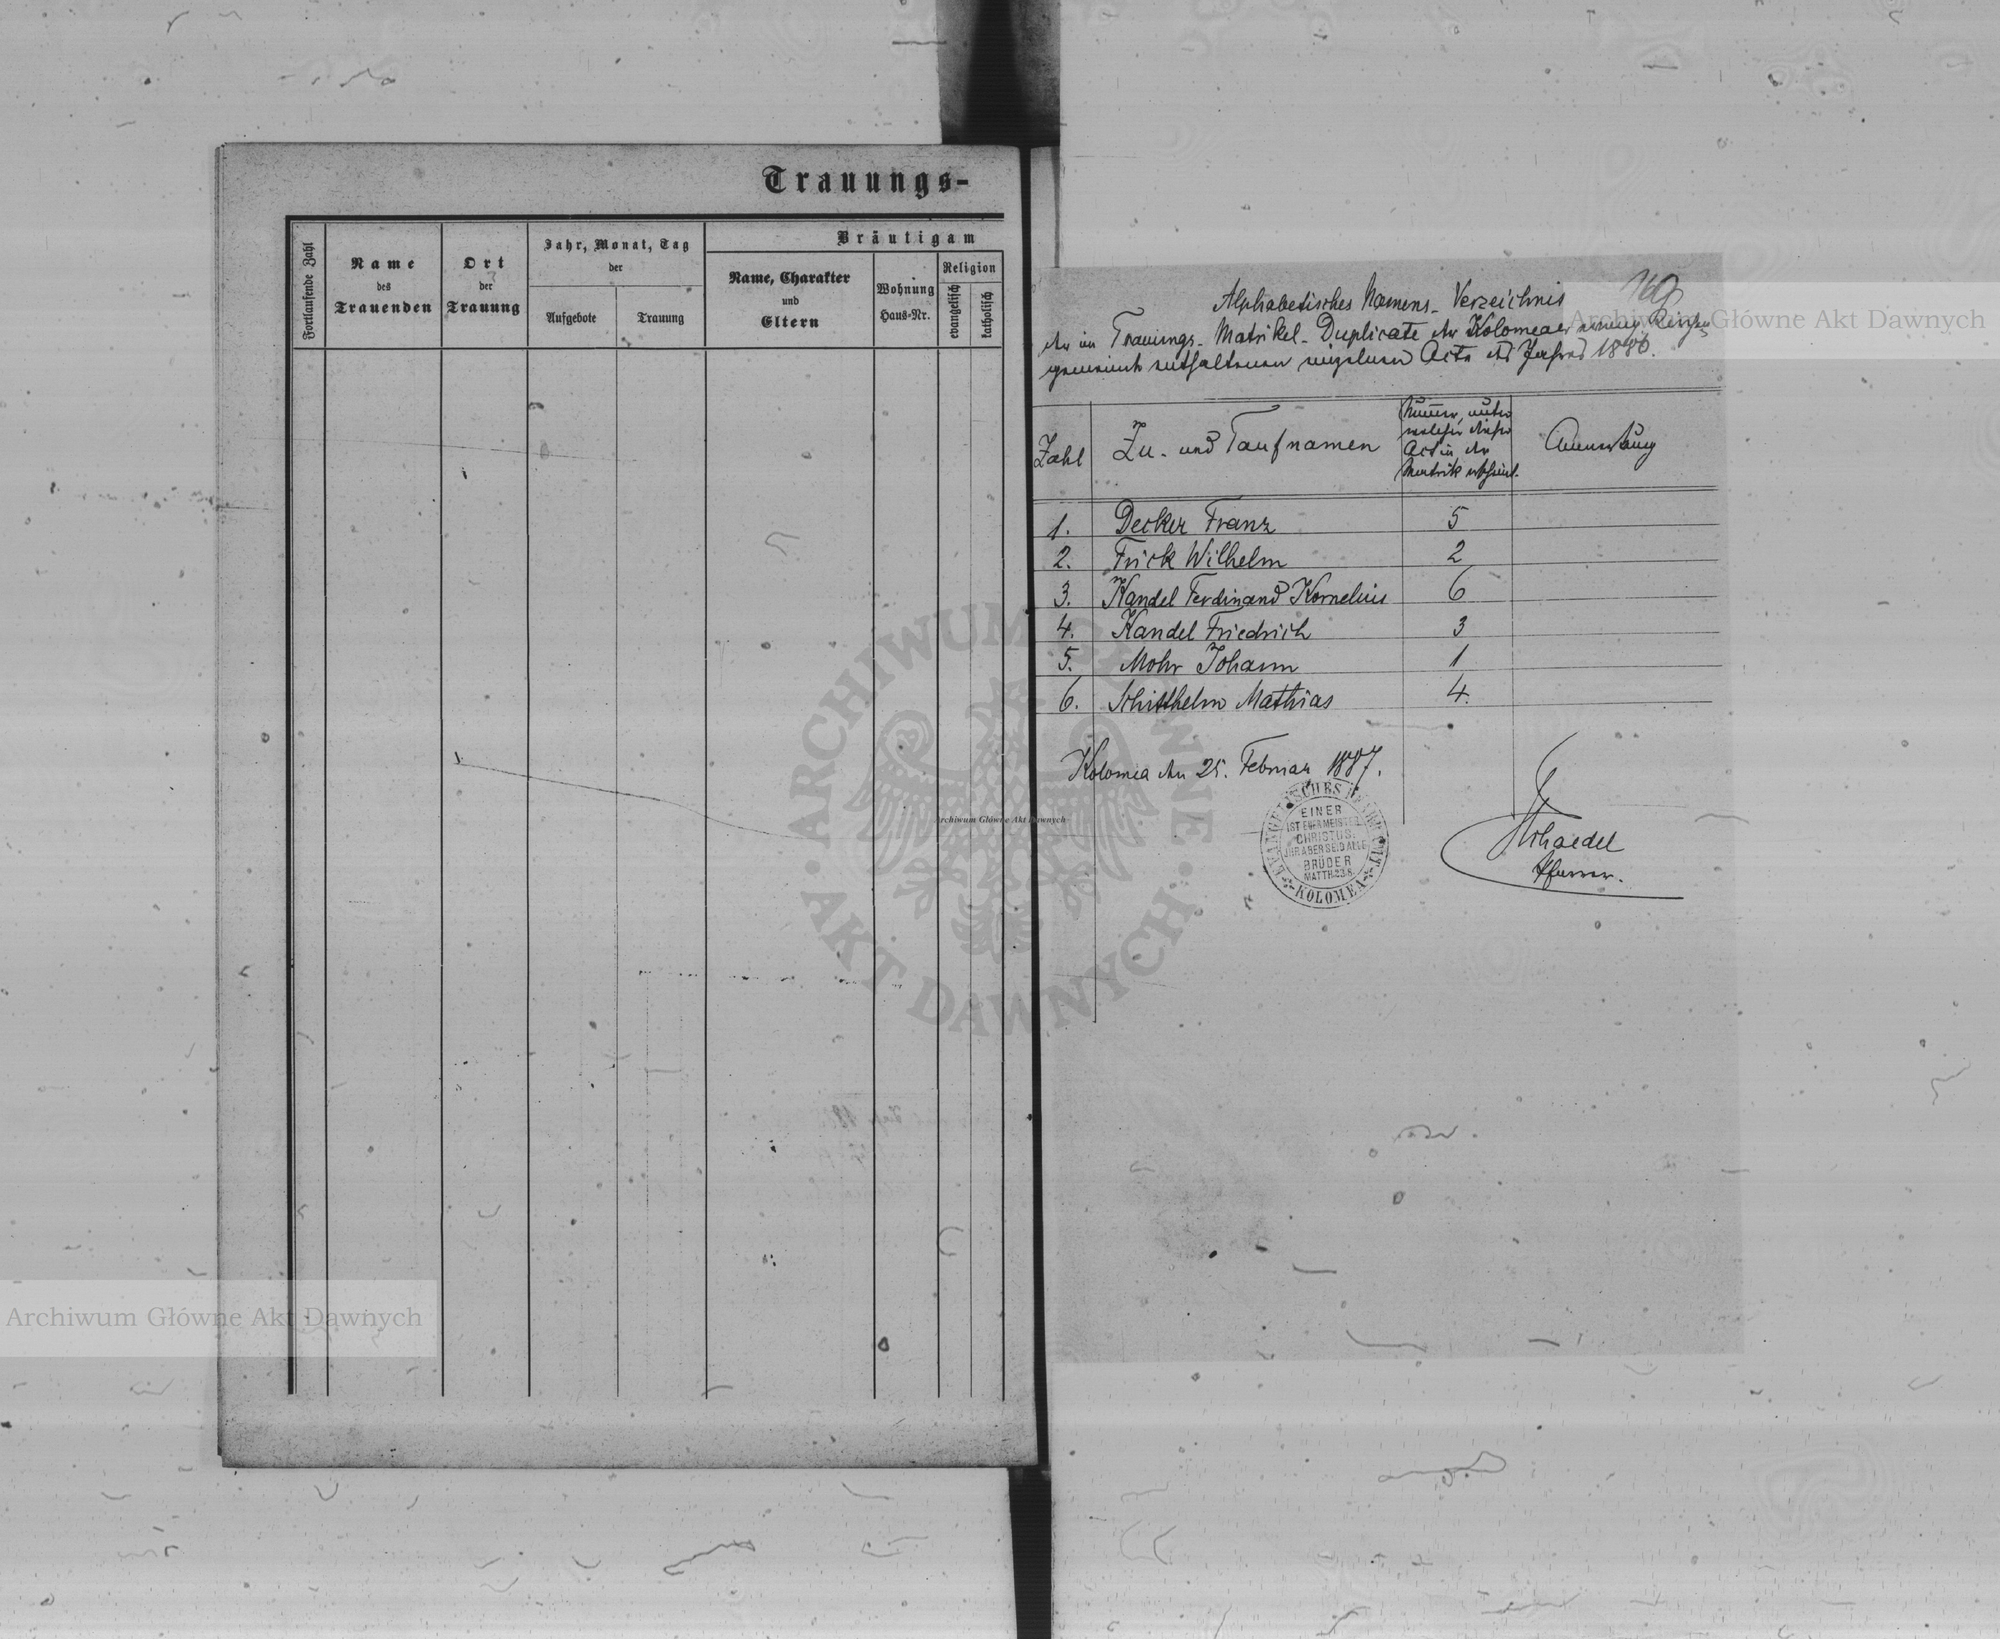 Trauungs-
Fortlaufende Zahl
Name
des
Trauenden
Ort
der
Trauung
Jahr, Monat, Tag
der
Aufgebote
Trauung
Bräutigam
Name, Charakter
und
Eltern
Wohnung
Haus-Nr.
Religion
evangelisch
katholisch
Alphabetisches Namens-Verzeichnis
der im Trauungs-Matrikel-Duplicate der Kolomeaer evang. Kirchen-
gemeinde enthaltenen einzelnen Acte des Jahres 1886.
Zahl
Zu- und Taufnamen
Nummer, unter
welcher dieser
Act in der
Matrik erscheint.
Anmerkung
1. Decker Franz 5
2. Frick Wilhelm 2
3. Kandel Ferdinand Kornelius 6
4. Kandel Friedrich 3
5. Mohr Johann 1
6. Schitthelm Mathias 4.
Kolomea den 25. Februar 1887.
EVANGELISCHES PFARRAMT
EINER
IST EUER MEISTER
CHRISTUS.
IHR ABER SEID ALLE
BRÜDER
MATTH.23.8.
KOLOMEA
Pfarrer.
Archiwum Główne Akt Dawnych
Archiwum Główne Akt Dawnych
Archiwum Główne Akt Dawnych
ARCHIWUM GŁÓWNE
AKT DAWNYCH